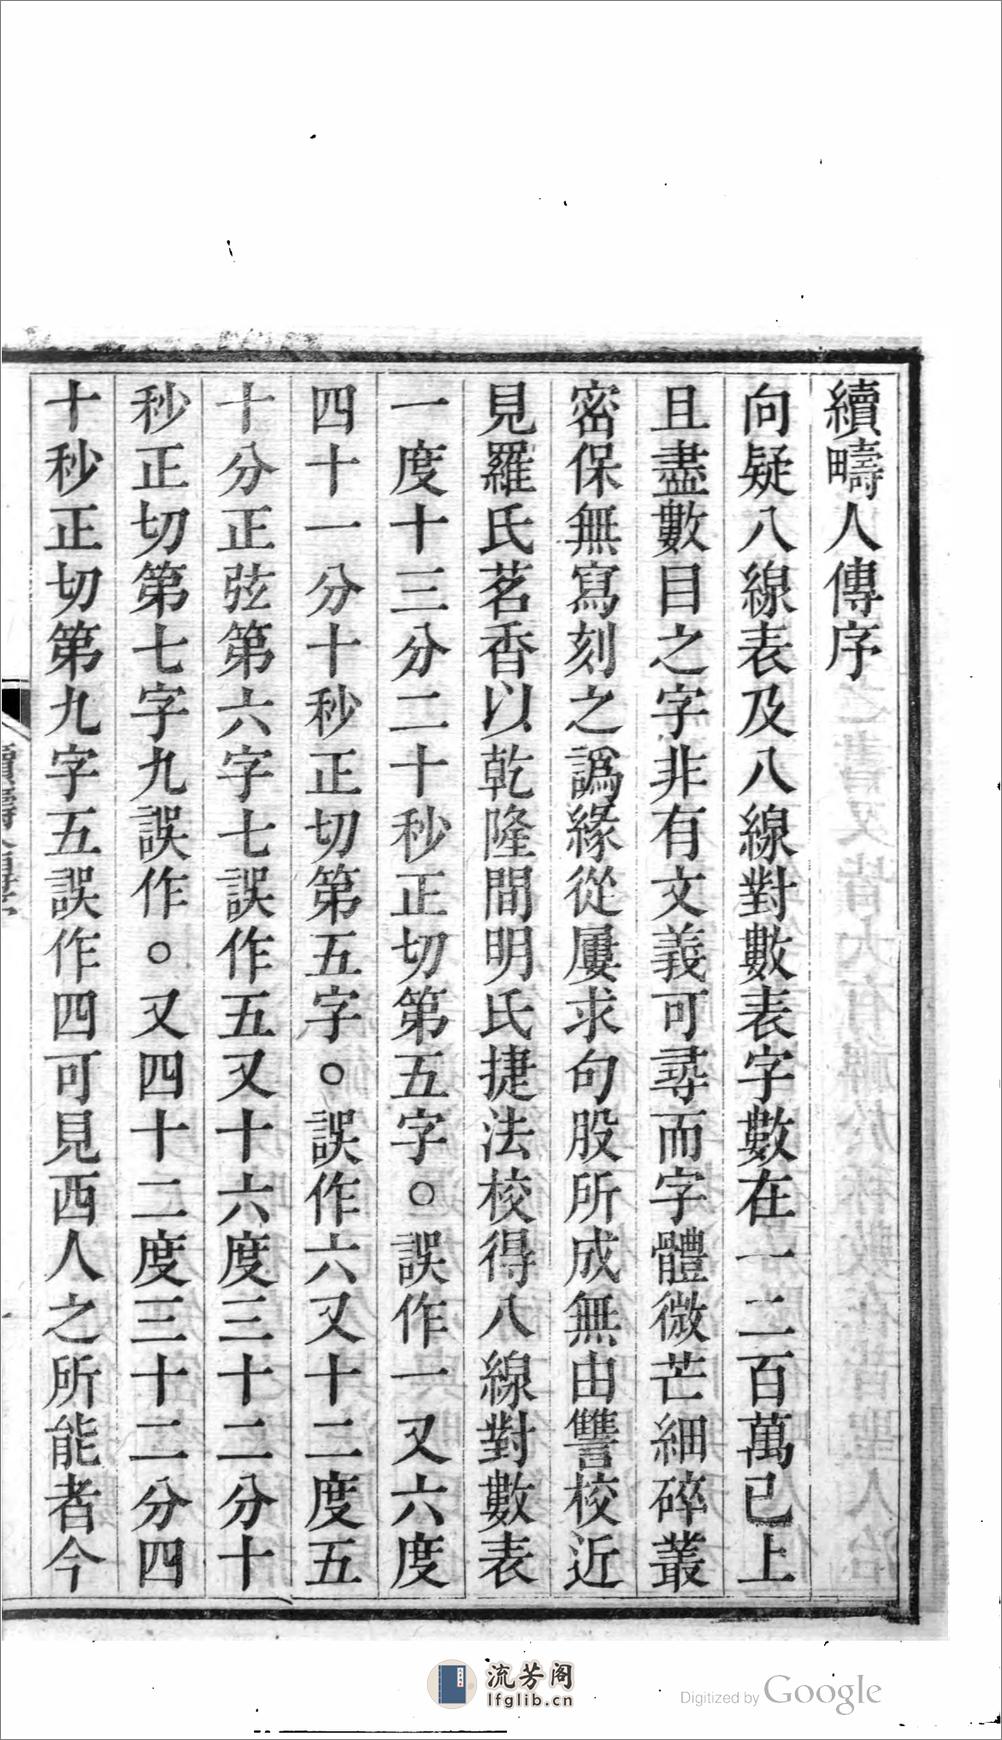 續疇人傳序
向疑八線表及八線對數表字數在一二百萬已上
且盡數目之字非有文義可尋而字體微芒細碎叢
密保無寫刻之譌緣從屢求句股所成無由讐校近
見羅氏茗香以乾隆間明氏捷法校得八線對數表
一度十三分二十秒正切第五字○誤作一又六度
四十一分十秒正切第五字○誤作六又十二度五
十分正弦第六字七誤作五又十六度三十二分十
秒正切第七字九誤作○又四十二度三十二分四
十秒正切第九字五誤作四可見西人之所能者今
流芳阁
lfglib.cn
Digitized by Google